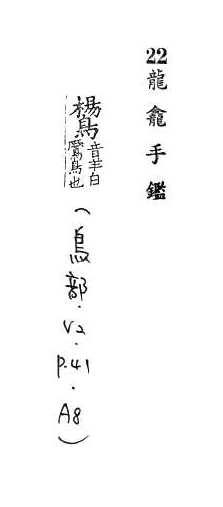 22龍龕手鑑
鸉音羊白鷢也(鳥部.V2.P.41.A8)